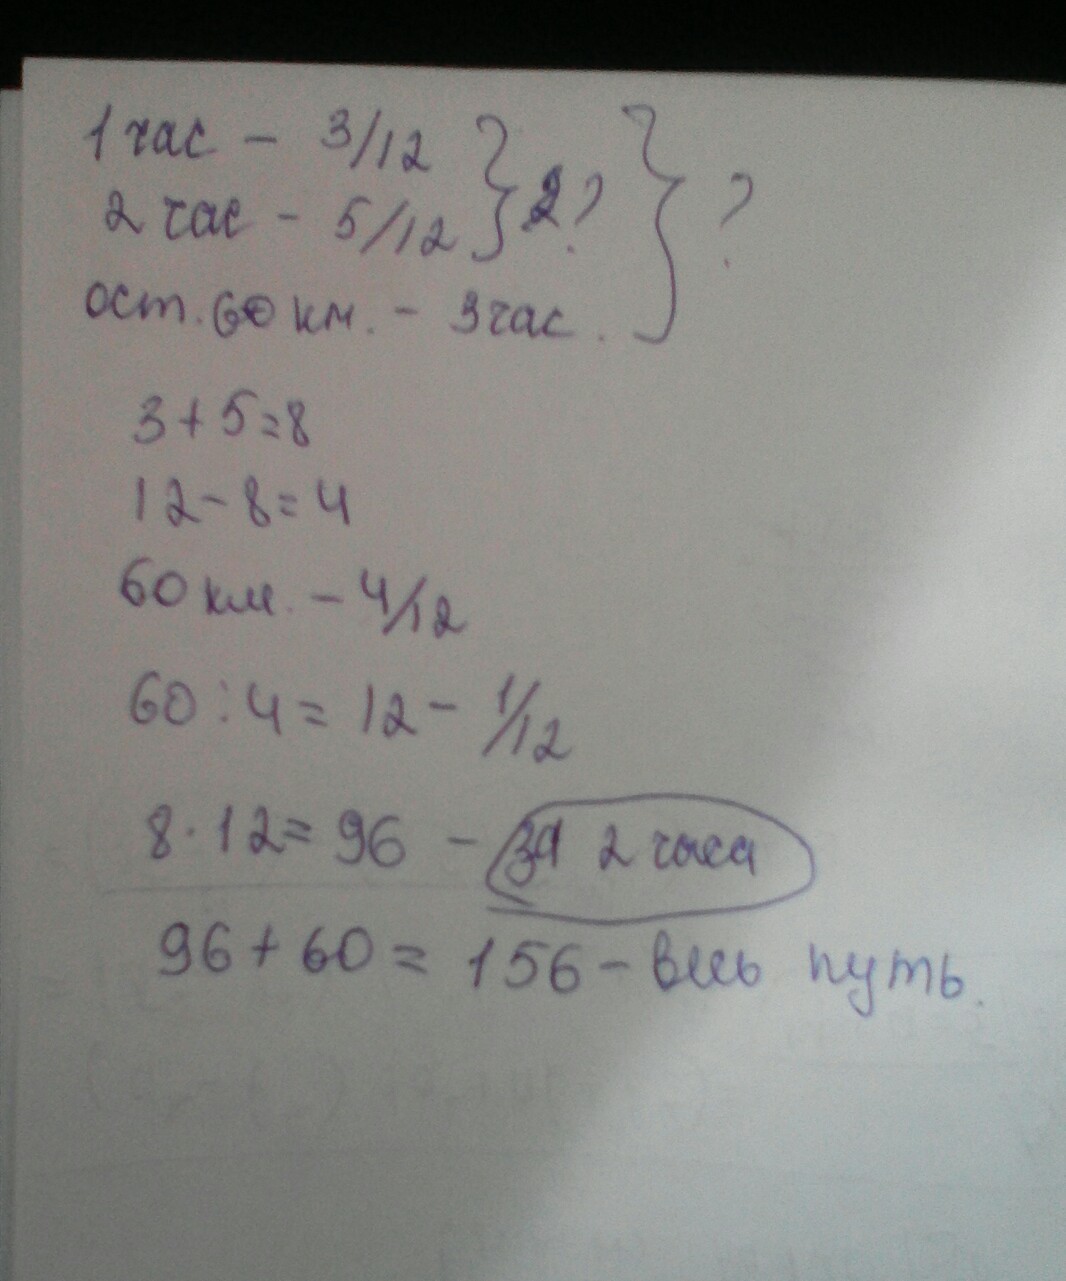 1 час - 3/12 } 2? } ?
2 час - 5/12
ост. 60 км. - 3 час.
3+5=8
12-8=4
60 км. - 4/12
60:4=12 - 1/12
8·12=96 - за 2 часа
96+60=156 - весь путь.